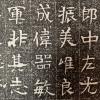 郎中左光
振美堆良
成偉器敏
軍非其志